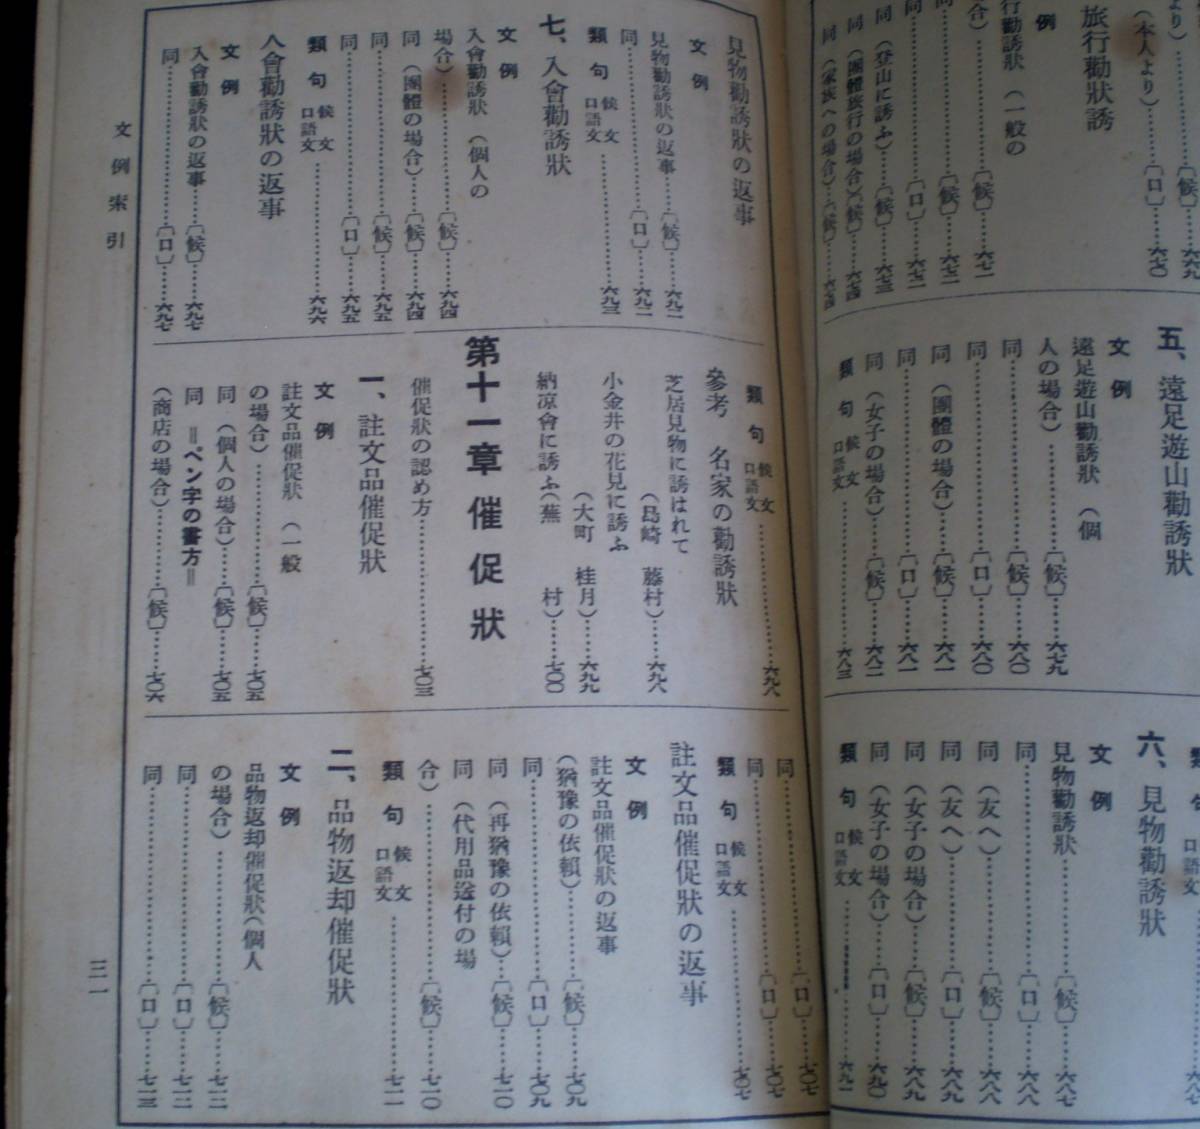 より)………〔候〕…六六九
(本人より)………〔口〕…六七〇
旅行勸狀誘
文例
行勸誘狀(一般の
合)………〔候〕…六七一
〔候〕…六七二
同………〔口〕…六七二
同(登山に誘ふ)…〔候〕…六七三
同(團體旅行の場合)〔候〕…六七四
同(家族への場合)…〔候〕…六七四
五、遠足遊山勸誘狀
文例
遠足遊山勸誘狀(個
人の場合)………〔候〕…六七九
同………〔候〕…六八〇
同………〔口〕…六八〇
同(團體の場合)…〔候〕…六八一
同………〔口〕…六八一
同(女子の場合)…〔候〕…六八二
類句 候文 口語文………六八三
六、見物勸誘狀
文例
見物勸誘狀………〔候〕…六八七
同………〔口〕…六八八
同(友へ)………〔候〕…六八八
同(友へ)………〔口〕…六八九
同(女子の場合)…〔候〕…六八九
同(女子の場合)…〔口〕…六九〇
類句 候文 口語文………六九一
見物勸誘狀の返事
文例
見物勸誘狀の返事…〔候〕…六九二
同………〔口〕…六九二
類句 候文 口語文………六九三
七、入會勸誘狀
文例
入會勸誘狀(個人の
場合)………〔候〕…六九四
同(團體の場合)…〔候〕…六九四
同………〔候〕…六九五
同………〔口〕…六九五
類句 候文 口語文………六九六
入會勸誘狀の返事
文例
入會勸誘狀の返事…〔候〕…六九七
同………〔口〕…六九七
類句 候文 口語文………六九八
參考 名家の勸誘狀
芝居見物に誘はれて
(島崎 藤村)…六九八
小金井の花見に誘ふ
(大町 桂月)…六九九
納凉會に誘ふ(蕪 村)…七〇〇
第十一章 催促狀
催促狀の認め方………七〇三
一、註文品催促狀
文例
註文品催促狀(一般
の場合)………〔候〕…七〇五
同(個人の場合)…〔候〕…七〇五
同 =ペン字の書方=
(商店の場合)…〔候〕…七〇六
同………〔口〕…七〇七
同………〔口〕…七〇七
類句 候文 口語文………七〇七
註文品催促狀の返事
文例
註文品催促狀の返事
(猶豫の依賴)…〔候〕…七〇九
同………〔口〕…七〇九
同(再猶豫の依賴)…〔候〕…七一〇
同(代用品送付の場
合)………〔候〕…七一〇
類句 候文 口語文………七一一
二、品物返却催促狀
文例
品物返却催促狀(個人
の場合)………〔候〕…七一二
同………〔口〕…七一二
同………〔口〕…七一三
文例索引
三一